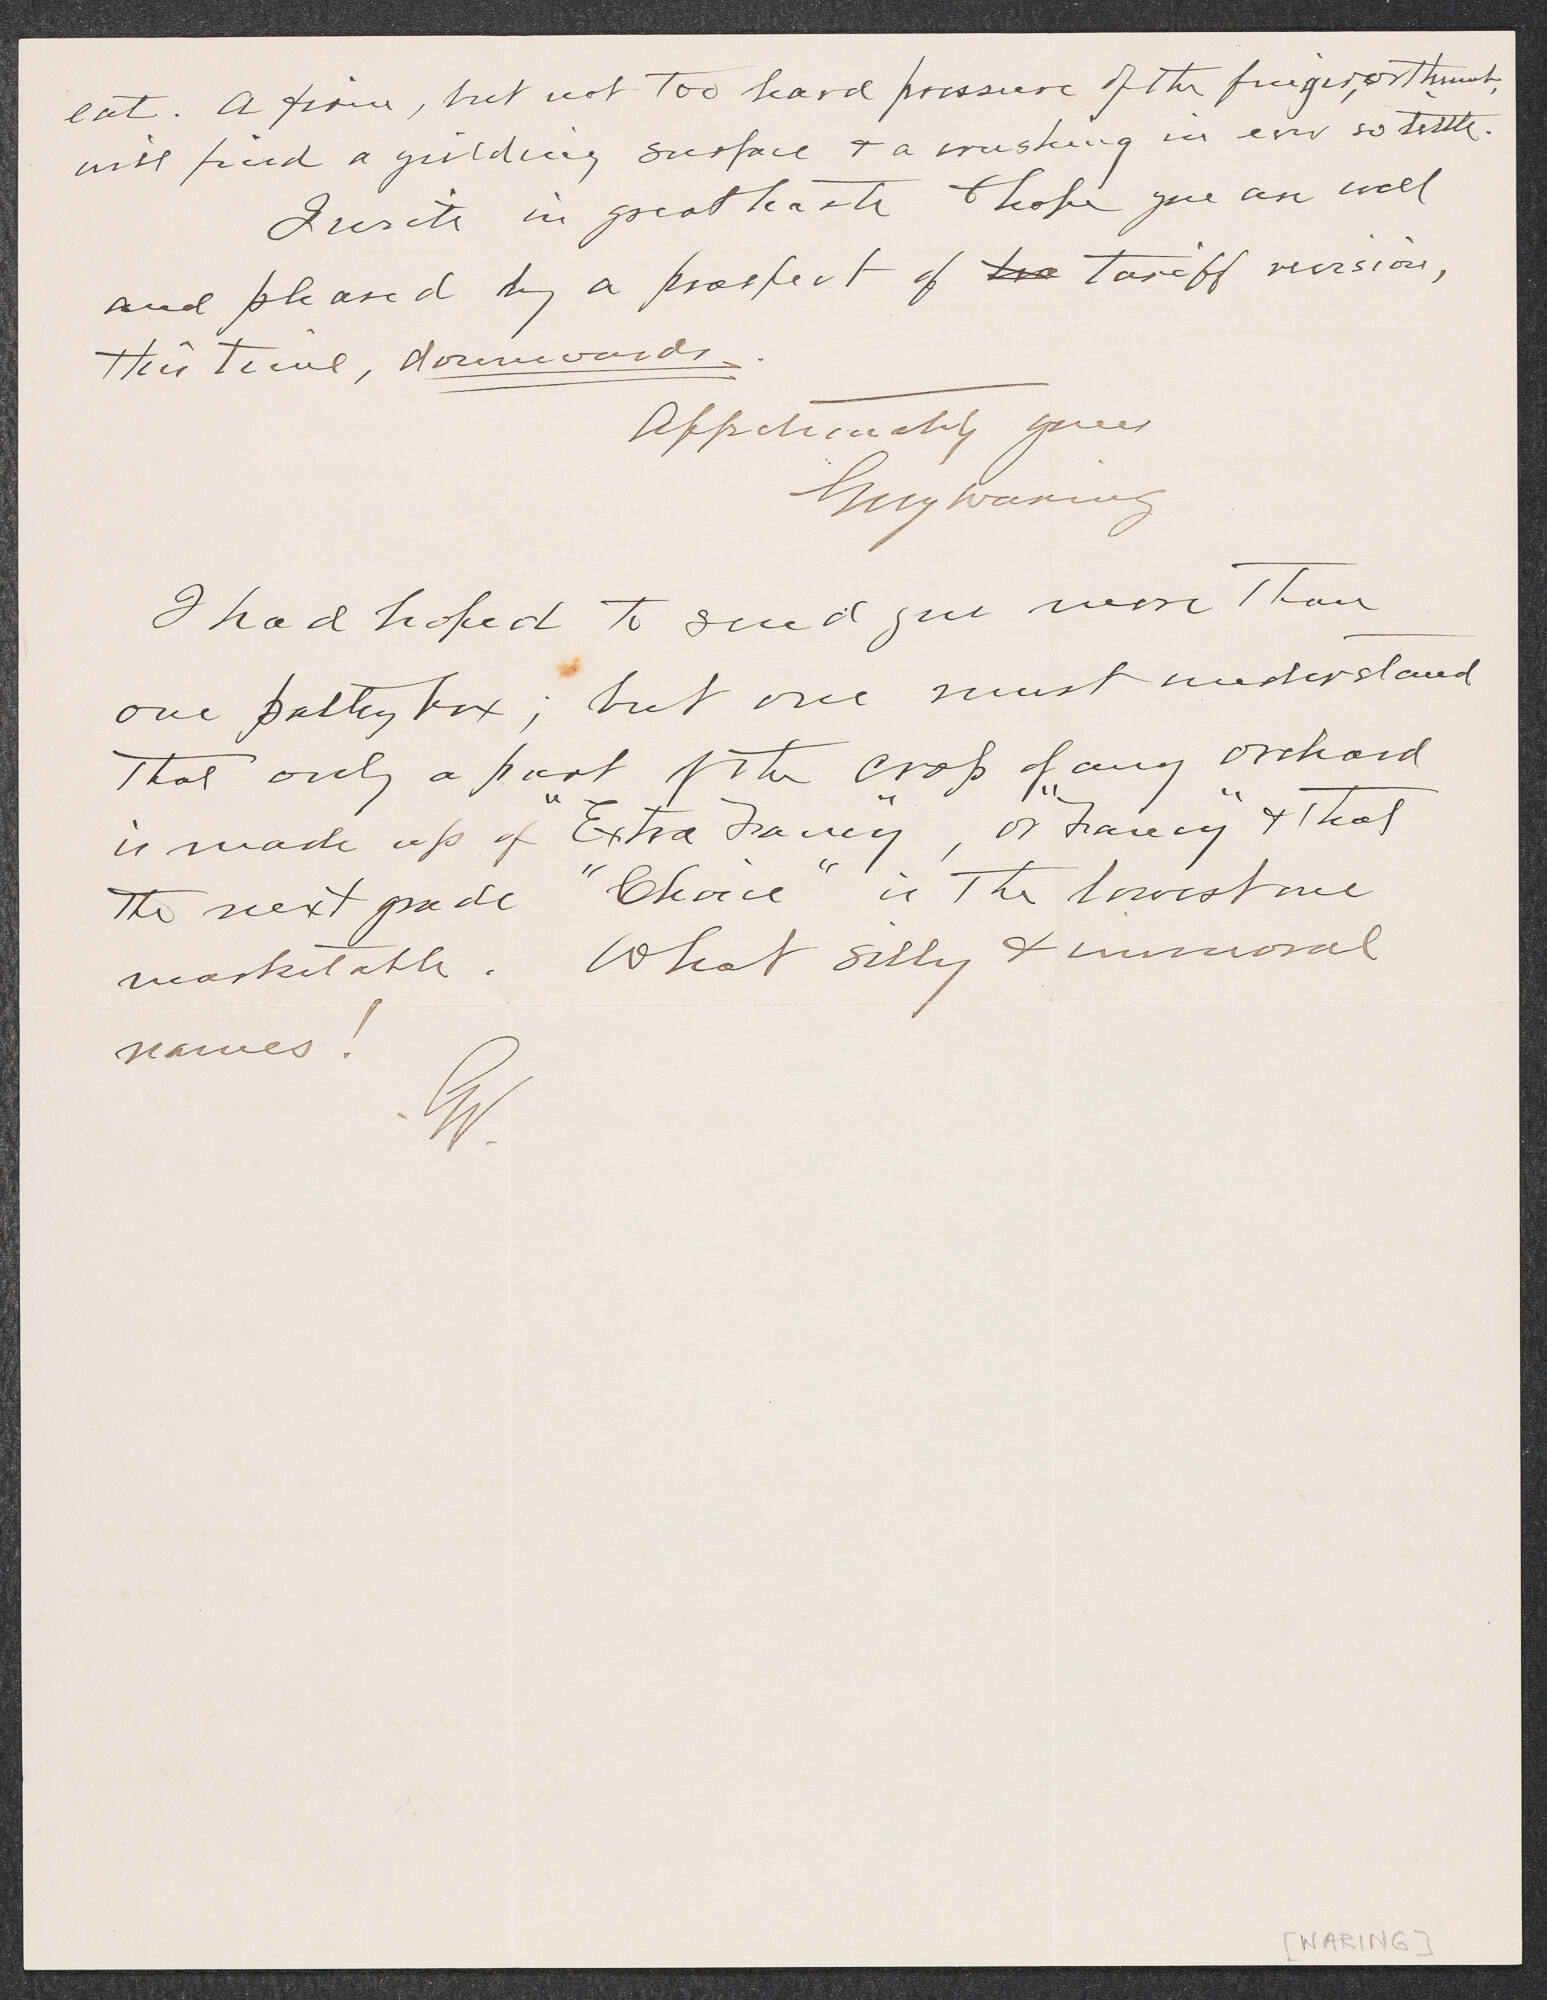 eat. A firm, but not too hard pressure of the finger, or thumb,
will find a yielding surface & a crushing in ever so little.
I write in great haste & hope you are well
and pleased by a prospect of tariff revision,
this time, downwards.
Affectionately yours
Guy Waring
I had hoped to send you more than
one paltry box; but one must understand
that only a part of the crop of any orchard
is made up of "Extra Fancy", or "Fancy" & that
the next grade "Choice" is the lowest one
marketable. What silly & immoral
names!
GW.
[WARING]